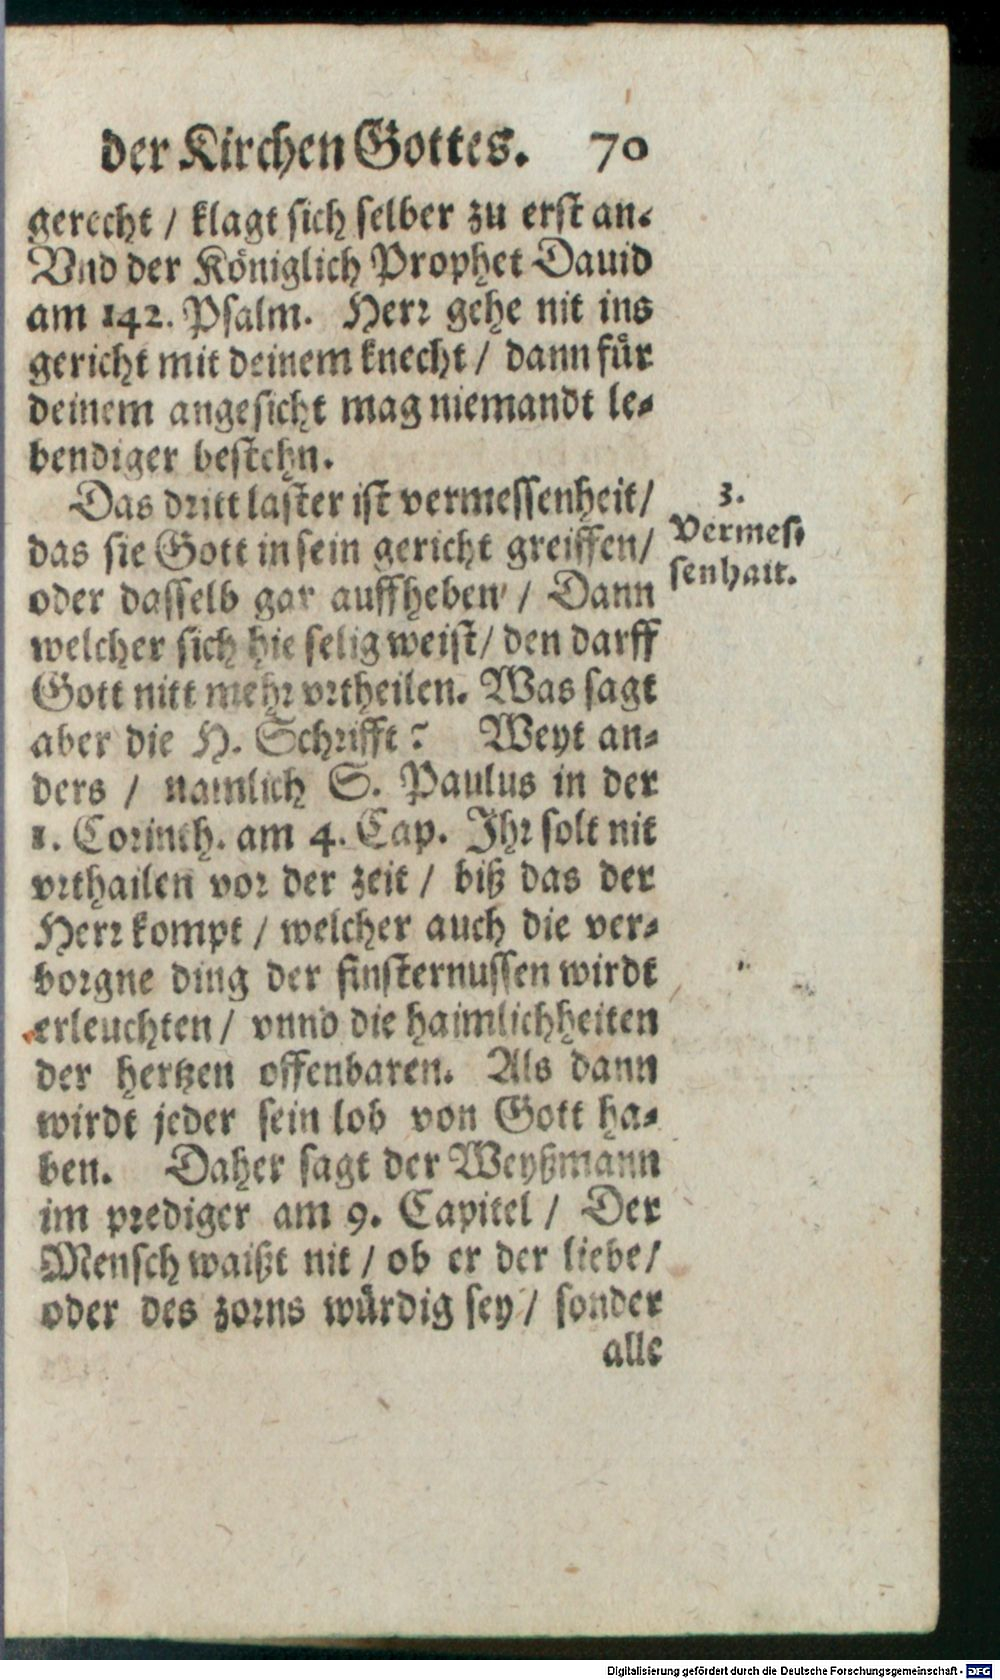 der Kirchen Gottes. 70
gerecht / klagt sich selber zu erst an.
Vnd der Königlich Prophet Dauid
am 142. Psalm. Herr gehe nit ins
gericht mit deinem knecht / dann für
deinem angesicht mag niemandt le-
bendiger bestehn.
Das dritt laster ist vermessenheit /
das sie Gott in sein gericht greiffen /
oder dasselb gar auffheben / Dann
welcher sich hie selig weist / den darff
Gott nitt mehr vrtheilen. Was sagt
aber die H. Schrifft? Weyt an-
ders / namlich S. Paulus in der
1. Corinth. am 4. Cap. Ihr solt nit
vrthailen vor der zeit / biß das der
Herr kompt / welcher auch die ver-
borgne ding der finsternussen wirdt
erleuchten / vnnd die haimlichheiten
der hertzen offenbaren. Als dann
wirdt jeder sein lob von Gott ha-
ben. Daher sagt der Weyßmann
im prediger am 9. Capitel / Der
Mensch waißt nit / ob er der liebe /
oder des zorns würdig sey / sonder
alle
3.
Vermes-
senhait.
Digitalisierung gefördert durch die Deutsche Forschungsgemeinschaft - DFG